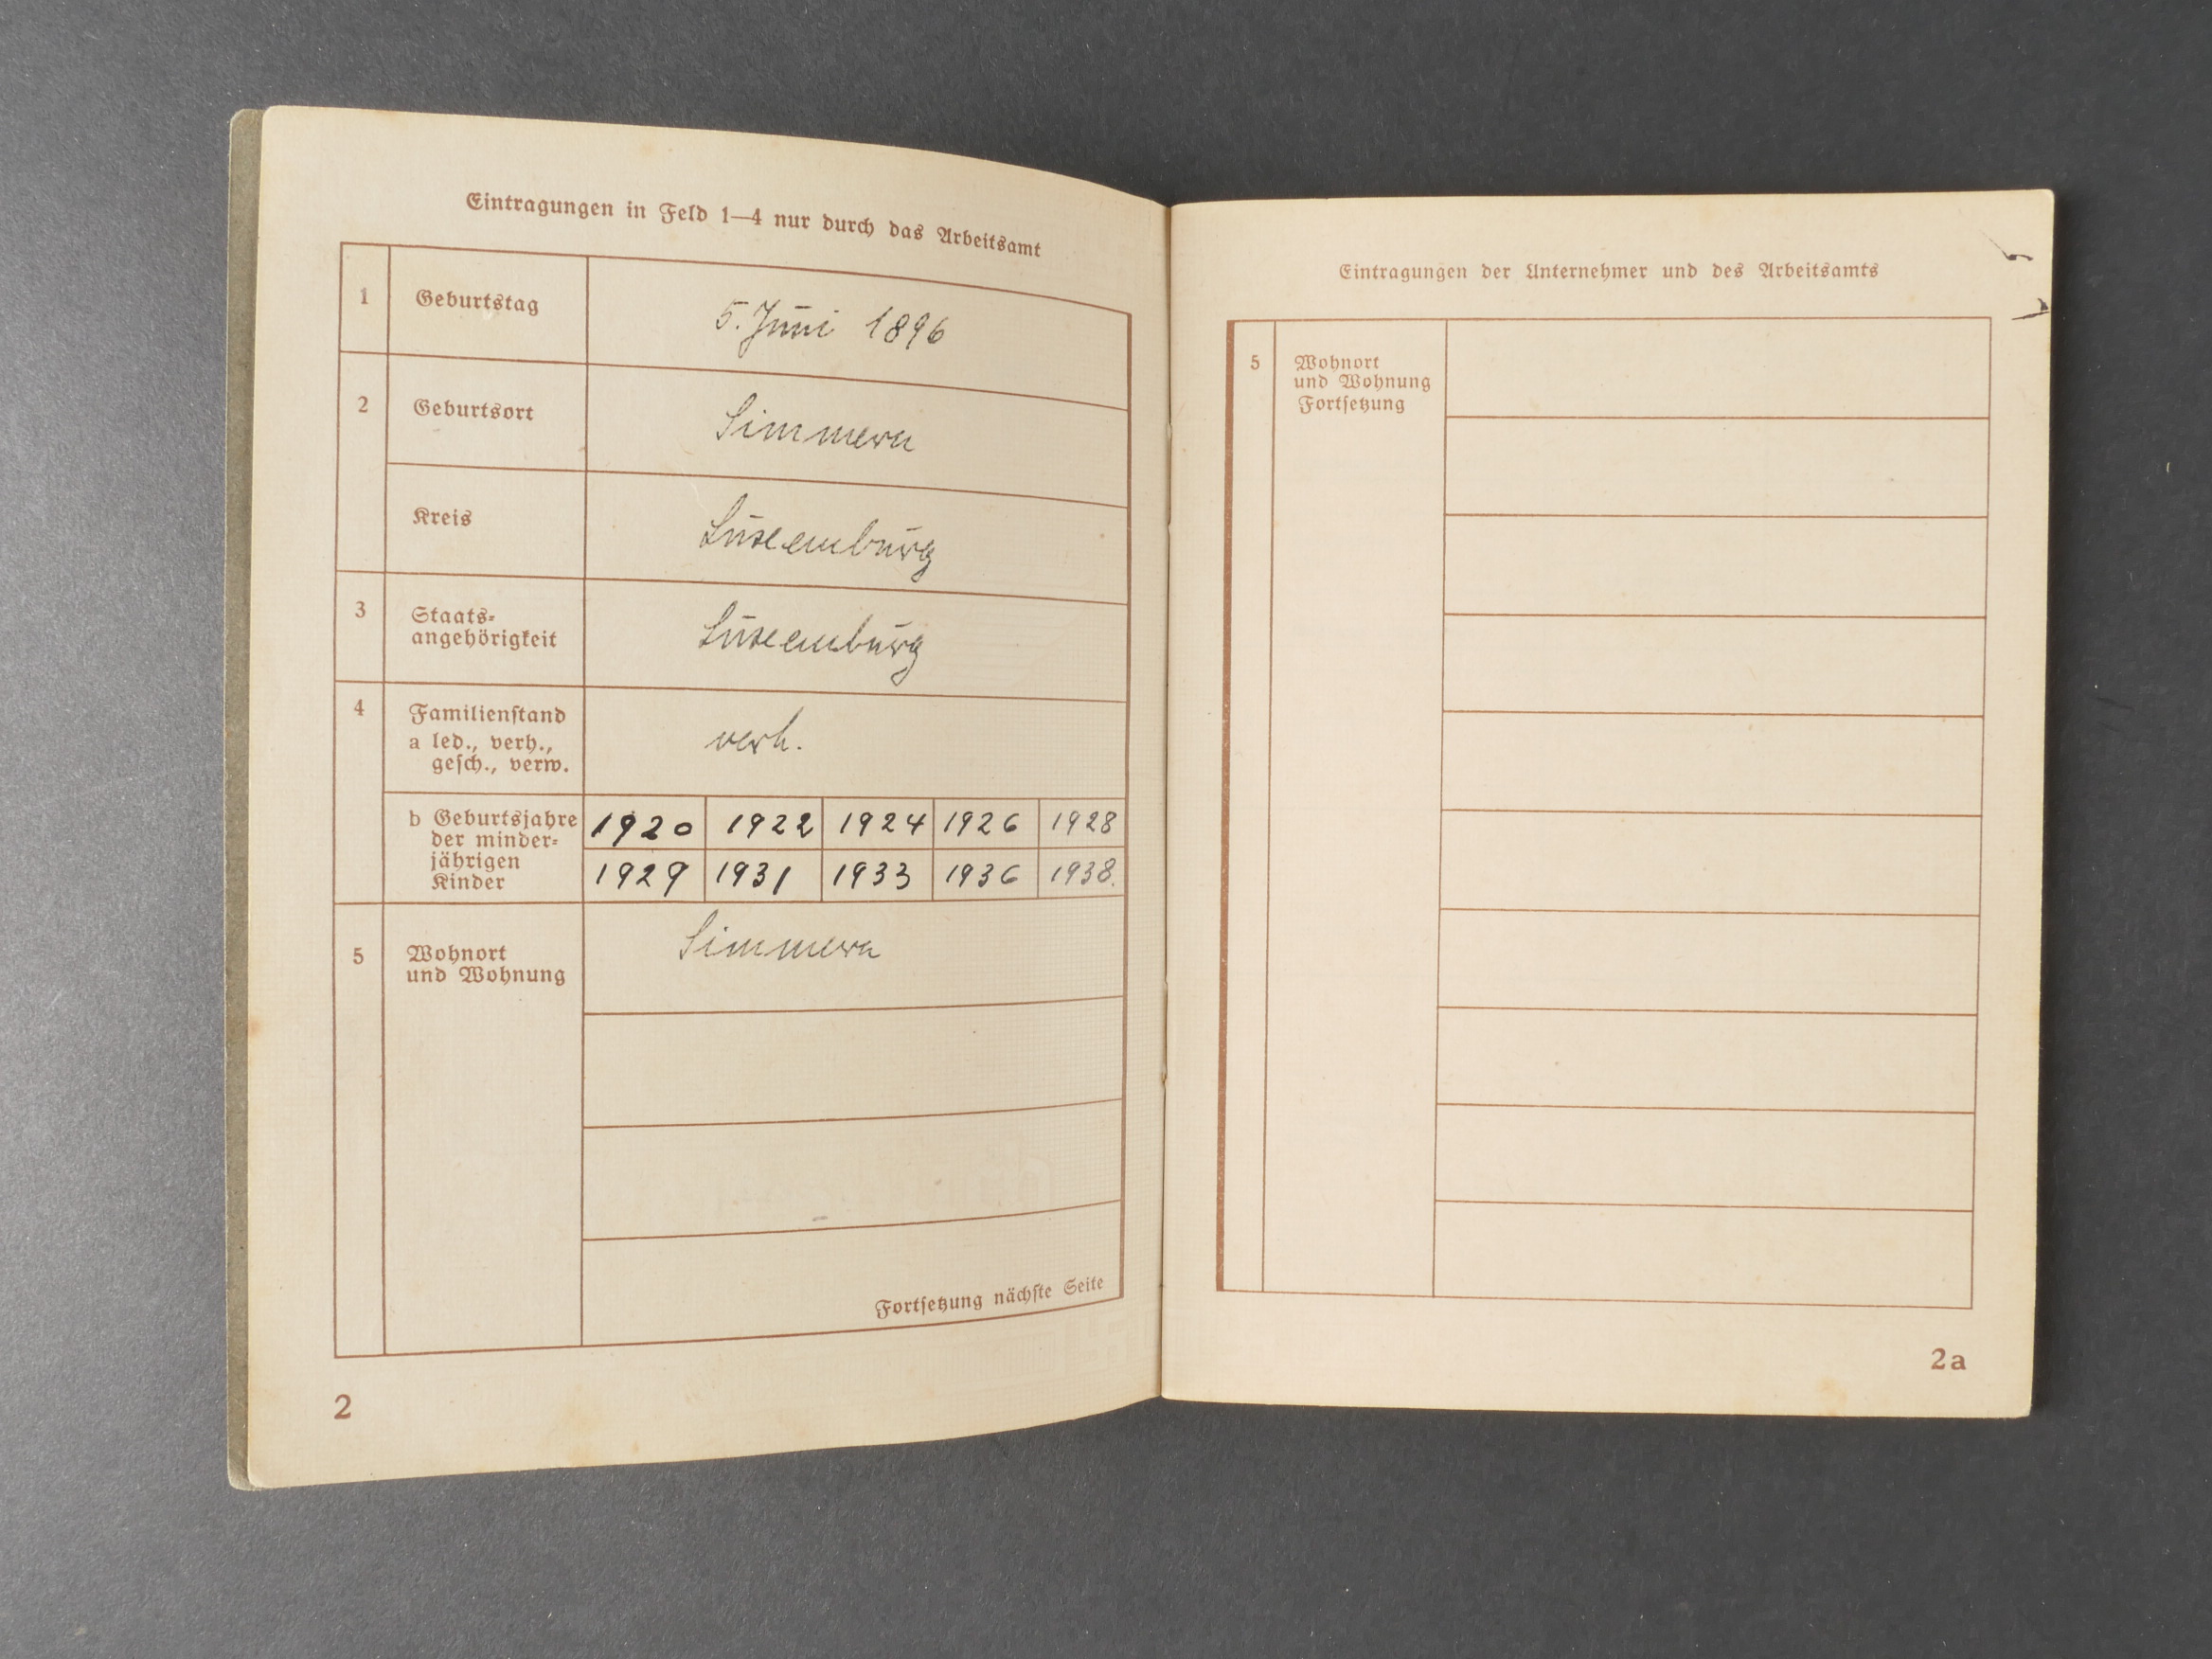 Eintragungen in Feld 1—4 nur durch das Arbeitsamt
1 Geburtstag 5. Juni 1896
2 Geburtsort Simmern
Kreis Luxemburg
3 Staats-
angehörigkeit Luxemburg
4 Familienstand
a led., verh.,
gesch., verw.
verh.
b Geburtsjahre
der minder-
jährigen
Kinder
1920 1922 1924 1926 1928
1929 1931 1933 1936 1938.
5 Wohnort
und Wohnung
Simmern
Fortsetzung nächste Seite
2
Eintragungen der Unternehmer und des Arbeitsamts
5 Wohnort
und Wohnung
Fortsetzung
2a